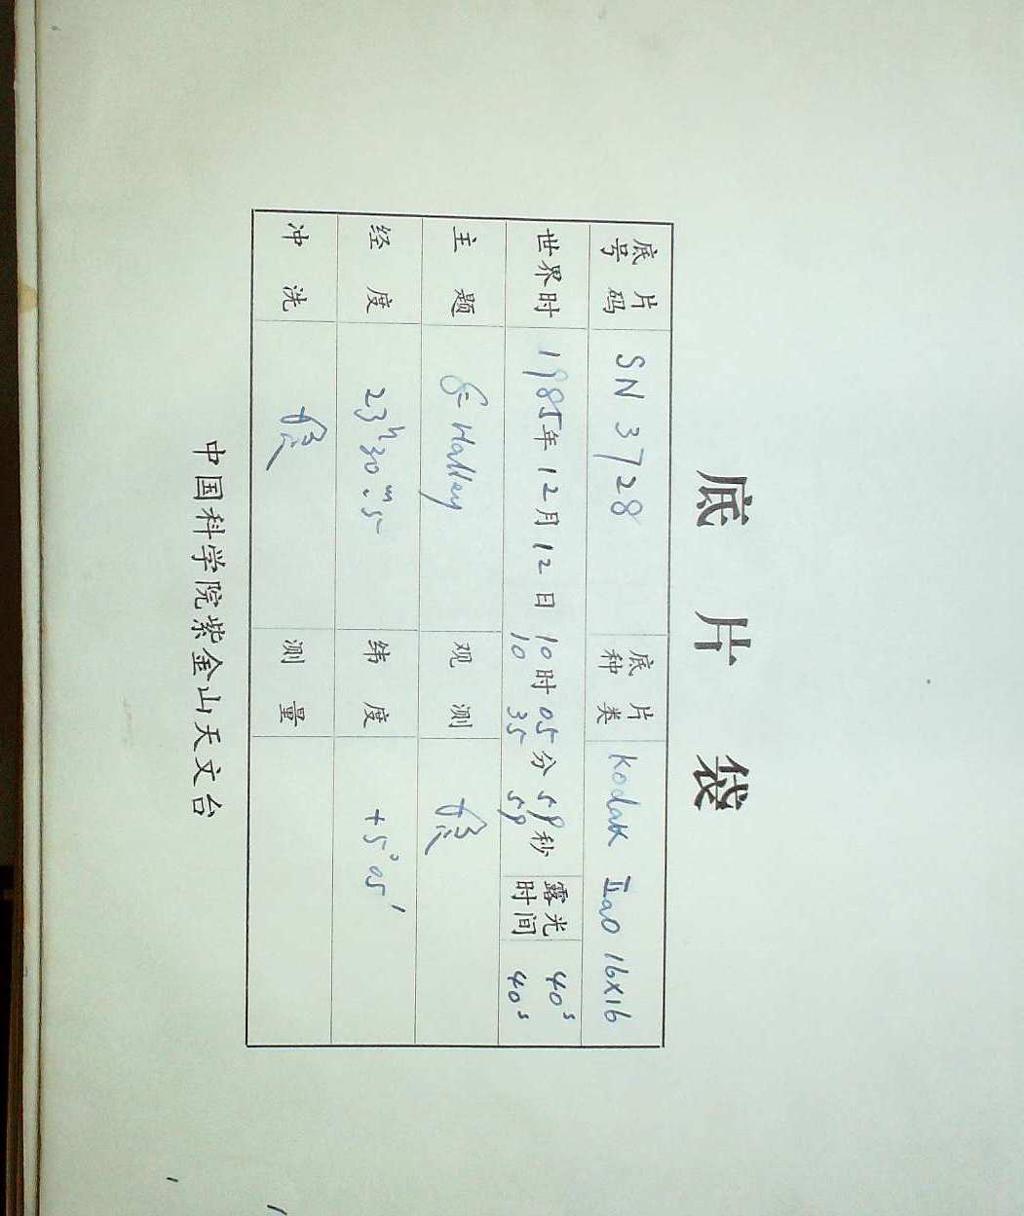 底片袋
底片号码 SN 3728 底片种类 Kodak IIaO 16×16
世界时 1985年12月12日 10时05分59秒 露光时间 40ˢ
10 35 59 40ˢ
主题 Halley 观测
经度 23ʰ30ᵐ.5 纬度 +5°05′
冲洗 测量
中国科学院紫金山天文台